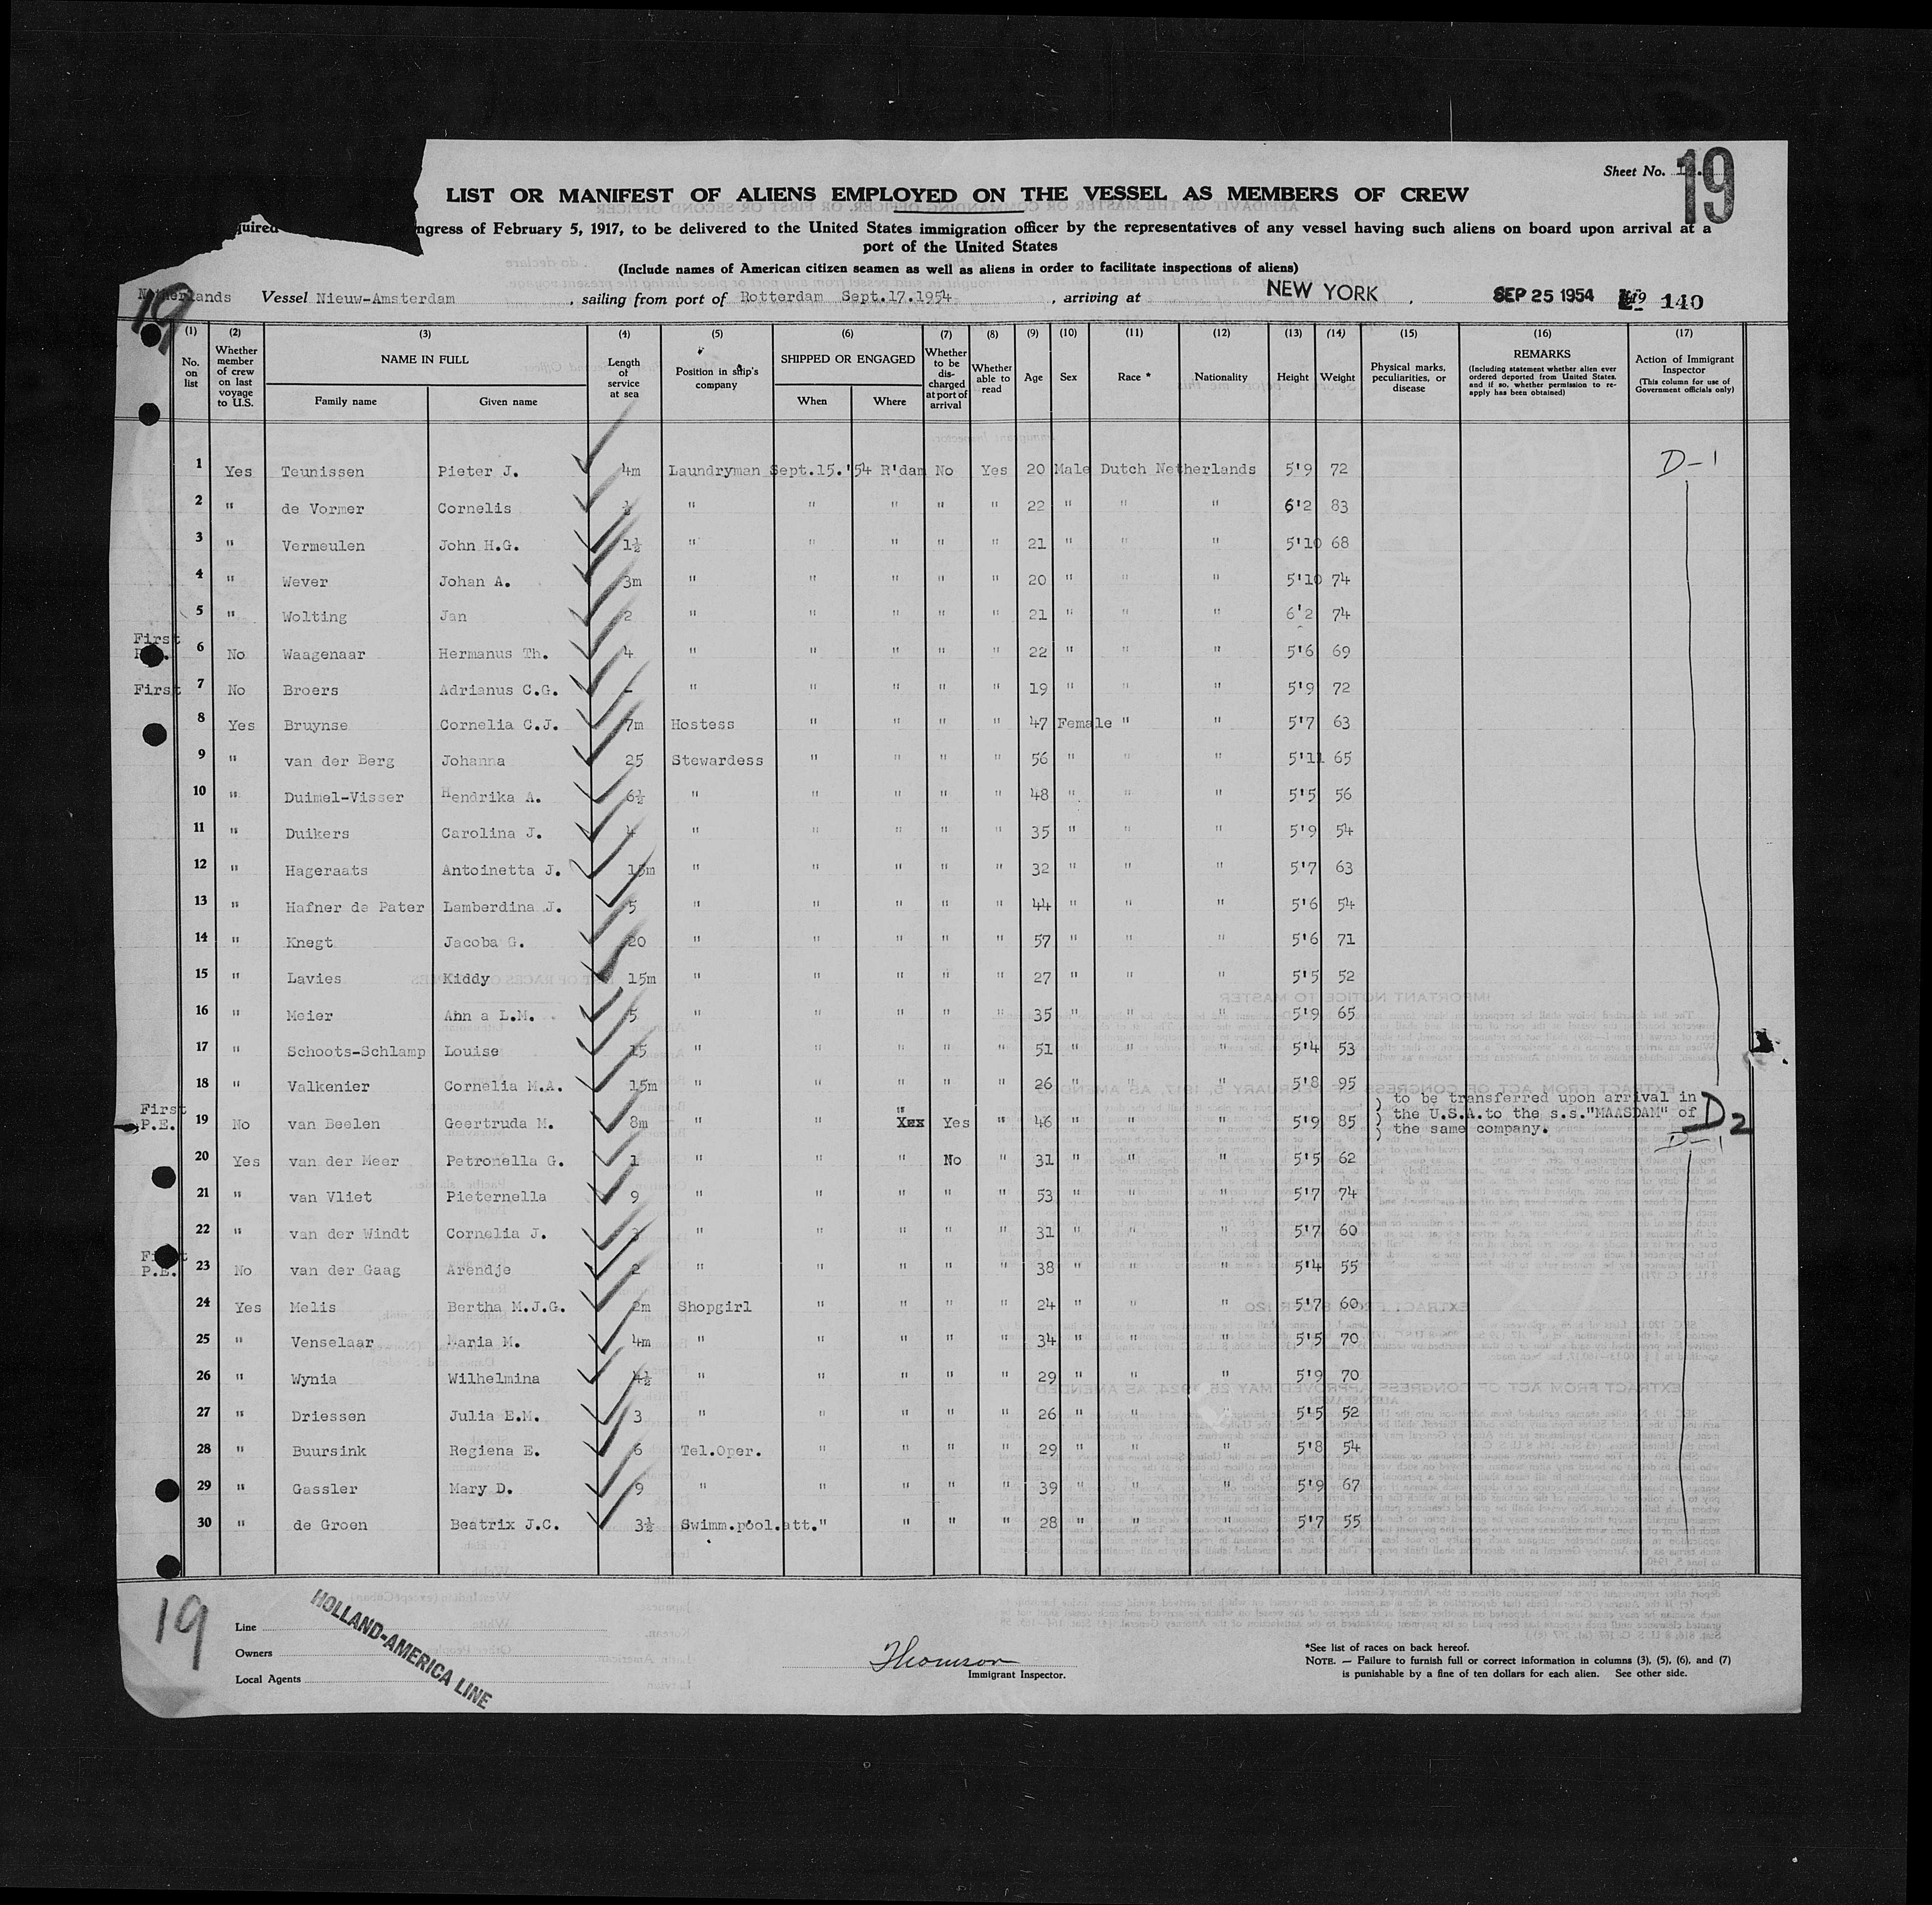 Sheet No. 19
LIST OR MANIFEST OF ALIENS EMPLOYED ON THE VESSEL AS MEMBERS OF CREW
quired ngress of February 5, 1917, to be delivered to the United States immigration officer by the representatives of any vessel having such aliens on board upon arrival at a
port of the United States
(Include names of American citizen seamen as well as aliens in order to facilitate inspections of aliens)
19
Netherlands Vessel Nieuw-Amsterdam, sailing from port of Rotterdam Sept.17.1954, arriving at NEW YORK, SEP 25 1954 19 140
(1) (2) (3) (4) (5) (6) (7) (8) (9) (10) (11) (12) (13) (14) (15) (16) (17)
No. on list
Whether member of crew on last voyage to U.S.
NAME IN FULL
Family name Given name
Length of service at sea
Position in ship's company
SHIPPED OR ENGAGED
When Where
Whether to be discharged at port of arrival
Whether able to read
Age Sex Race * Nationality Height Weight
Physical marks, peculiarities, or disease
REMARKS
(Including statement whether alien ever ordered deported from United States, and if so, whether permission to reapply has been obtained)
Action of Immigrant Inspector
(This column for use of Government officials only)
1 Yes Teunissen Pieter J. 4m Laundryman Sept.15.'54 R'dam No Yes 20 Male Dutch Netherlands 5'9 72 D-1
2 " de Vormer Cornelis ½ " " " " " 22 " " " 6'2 83
3 " Vermeulen John H.G. 1½ " " " " " 21 " " " 5'10 68
4 " Wever Johan A. 3m " " " " " 20 " " " 5'10 74
5 " Wolting Jan 2 " " " " " 21 " " " 6'2 74
First 6 No Waagenaar Hermanus Th. 4 " " " " " 22 " " " 5'6 69
First 7 No Broers Adrianus C.G. - " " " " " 19 " " " 5'9 72
8 Yes Bruynse Cornelia C.J. 7m Hostess " " " " 47 Female " " 5'7 63
9 " van der Berg Johanna 25 Stewardess " " " " 56 " " " 5'11 65
10 " Duimel-Visser Hendrika A. 6½ " " " " " 48 " " " 5'5 56
11 " Duikers Carolina J. 4 " " " " " 35 " " " 5'9 54
12 " Hageraats Antoinetta J. 15m " " " " " 32 " " " 5'7 63
13 " Hafner de Pater Lamberdina J. 5 " " " " " 44 " " " 5'6 54
14 " Knegt Jacoba G. 20 " " " " " 57 " " " 5'6 71
15 " Lavies Kiddy 15m " " " " " 27 " " " 5'5 52
16 " Meier Ahn a L.M. 5 " " " " " 35 " " " 5'9 65
17 " Schoots-Schlamp Louise 15 " " " " " 51 " " " 5'4 53
18 " Valkenier Cornelia M.A. 15m " " " " " 26 " " " 5'8 95
First P.E. 19 No van Beelen Geertruda M. 8m " " " Xxx Yes " 46 " " " 5'9 85 ) to be transferred upon arrival in
) the U.S.A.to the s.s."MAASDAM" of D2
) the same company. D-1
20 Yes van der Meer Petronella G. 1 " " " No " 31 " " " 5'5 62
21 " van Vliet Pieternella 9 " " " " " 53 " " " 5'7 74
22 " van der Windt Cornelia J. 3 " " " " " 31 " " " 5'7 60
First P.E. 23 No van der Gaag Arendje 2 " " " " " 38 " " " 5'4 55
24 Yes Melis Bertha M.J.G. 2m Shopgirl " " " " 24 " " " 5'7 60
25 " Venselaar Maria M. 4m " " " " " 34 " " " 5'5 70
26 " Wynia Wilhelmina 4½ " " " " " 29 " " " 5'9 70
27 " Driessen Julia E.M. 3 " " " " " 26 " " " 5'5 52
28 " Buursink Regiena E. 6 Tel.Oper. " " " " 29 " " " 5'8 54
29 " Gassler Mary D. 9 " " " " " 39 " " " 5'9 67
30 " de Groen Beatrix J.C. 3½ Swimm.pool.att." " " " 28 " " " 5'7 55
19
Line
Owners
Local Agents
HOLLAND-AMERICA LINE
Thomson
Immigrant Inspector.
*See list of races on back hereof.
NOTE. — Failure to furnish full or correct information in columns (3), (5), (6), and (7)
is punishable by a fine of ten dollars for each alien. See other side.